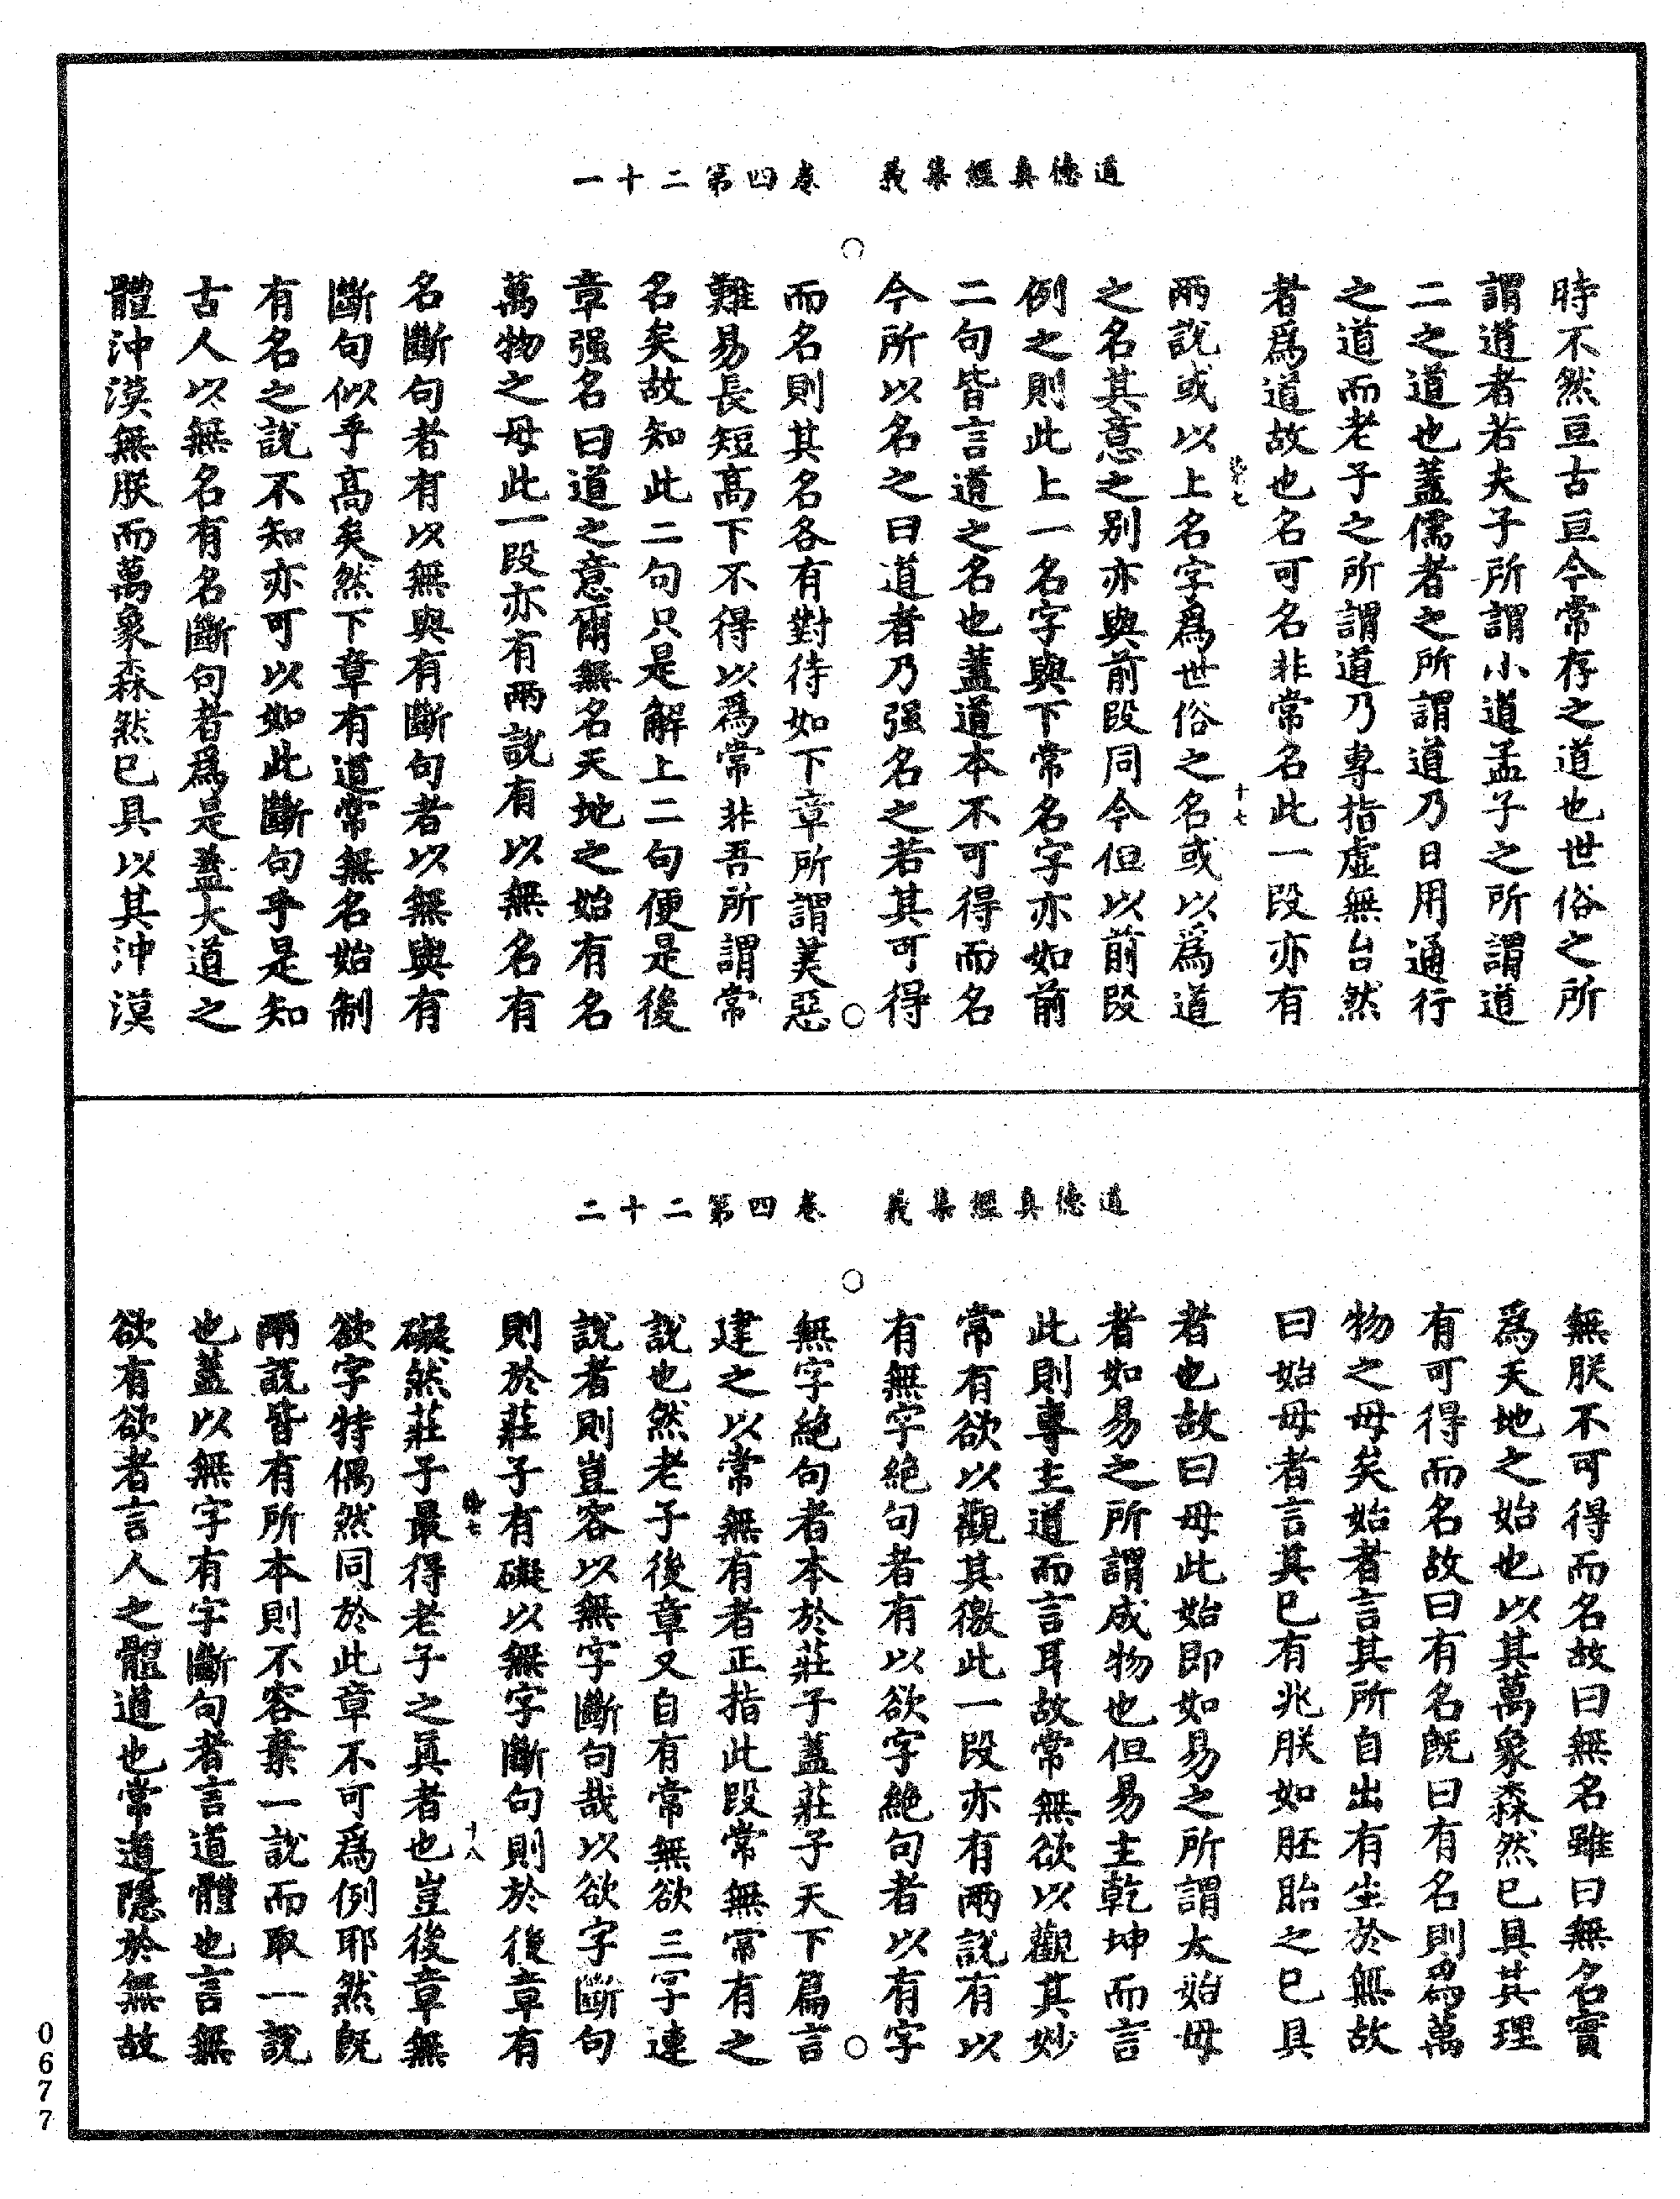 道德真經集義　卷四第二十一
時不然亘古亘今常存之道也世俗之所
謂道者若夫子所謂小道孟子之所謂道
二之道也蓋儒者之所謂道乃日用通行
之道而老子之所謂道乃專指虛無自然
者爲道故也名可名非常名此一段亦有
十七
兩說或以上名字爲世俗之名或以爲道
之名其意之别亦與前段同今但以前段
例之則此上一名字與下常名字亦如前
二句皆言道之名也蓋道本不可得而名
今所以名之曰道者乃强名之若其可得
而名則其名各有對待如下章所謂美惡
難易長短高下不得以爲常非吾所謂常
名矣故知此二句只是解上二句便是後
章强名曰道之意爾無名天地之始有名
萬物之母此一段亦有兩說有以無名有
名斷句者有以無與有斷句者以無與有
斷句似乎高矣然下章有道常無名始制
有名之說不知亦可以如此斷句乎是知
古人以無名有名斷句者爲是蓋大道之
體沖漠無朕而萬象森然已具以其沖漠
道德真經集義　卷四第二十二
無朕不可得而名故曰無名雖曰無名實
爲天地之始也以其萬象森然已具其理
有可得而名故曰有名既曰有名則爲萬
物之母矣始者言其所自出有生於無故
曰始母者言其已有兆朕如胚胎之已具
者也故曰母此始即如易之所謂太始母
者如易之所謂成物也但易主乾坤而言
此則專主道而言耳故常無欲以觀其妙
常有欲以觀其徼此一段亦有兩說有以
有無字絶句者有以欲字絶句者以有字
無字絶句者本於莊子蓋莊子天下篇言
建之以常無有者正指此段常無常有之
說也然老子後章又自有常無欲三字連
說者則豈容以無字斷句哉以欲字斷句
則於莊子有礙以無字斷句則於後章有
十八
礙然莊子最得老子之真者也豈後章無
欲字特偶然同於此章不可爲例耶然既
兩說皆有所本則不容棄一說而取一說
也蓋以無字有字斷句者言道體也言無
欲有欲者言人之體道也常道隱於無故
0677